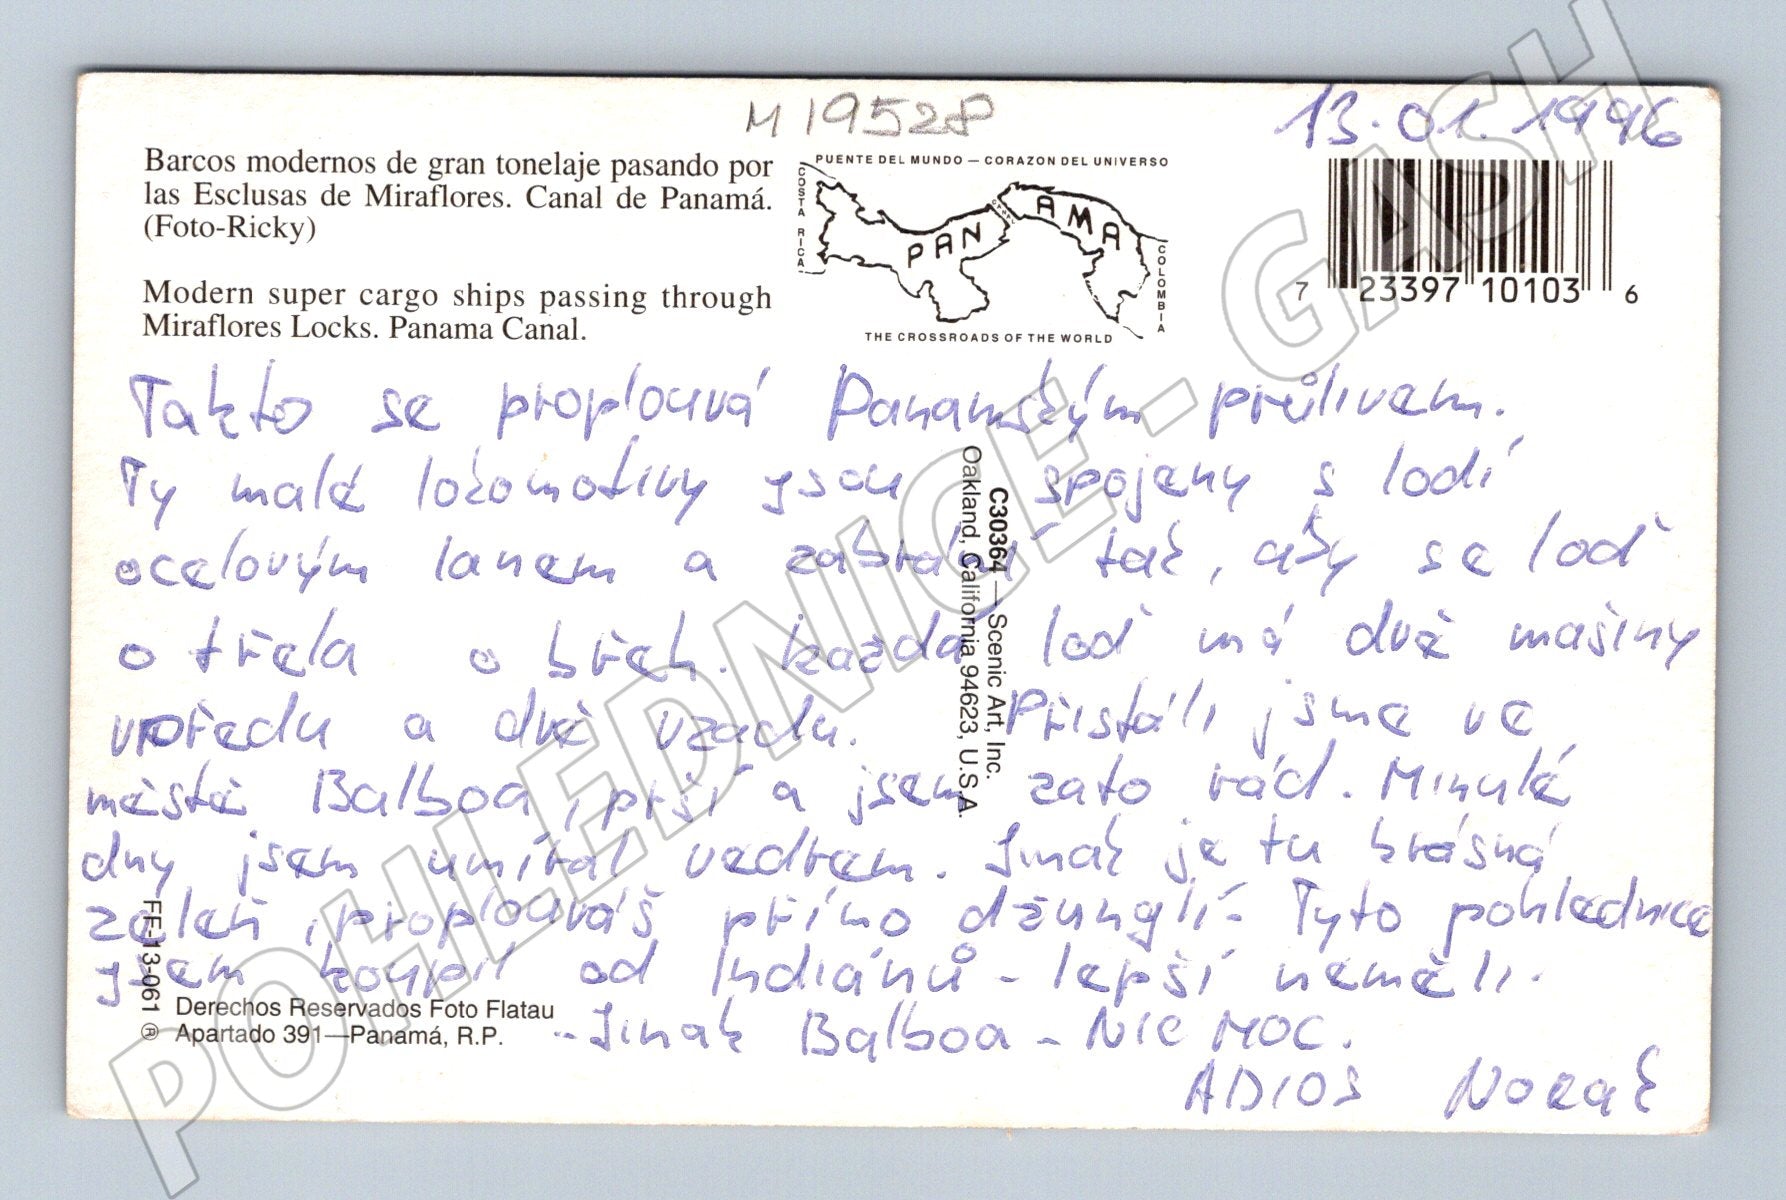 M 19528
13.01.1996
Barcos modernos de gran tonelaje pasando por
las Esclusas de Miraflores. Canal de Panamá.
(Foto-Ricky)
Modern super cargo ships passing through
Miraflores Locks. Panama Canal.
PUENTE DEL MUNDO — CORAZON DEL UNIVERSO
COSTA RICA
PANAMA
CANAL
COLOMBIA
THE CROSSROADS OF THE WORLD
7 23397 10103 6
Takto se proplouvá Panamským průlivem.
Ty malé lokomotivy jsou spojeny s lodí
ocelovým lanem a zabírají tak, aby se loď
o třela o břeh. Každá loď má dvě mašiny
vpředu a dvě vzadu. Přistáli jsme ve
městě Balboa, prší a jsem zato rád. Minulé
dny jsem umíral vedrem. Jinak je tu krásná
zeleň, proplouváš přímo džunglí. Tyto pohlednice
jsem koupil od Indiánů - lepší neměli.
- Jinak Balboa - NIC MOC.
ADIOS Novák
C30364 — Scenic Art, Inc.
Oakland, California 94623, U.S.A.
FF-13-061 ®
Derechos Reservados Foto Flatau
Apartado 391—Panamá, R.P.
POHLEDNICE - GASH